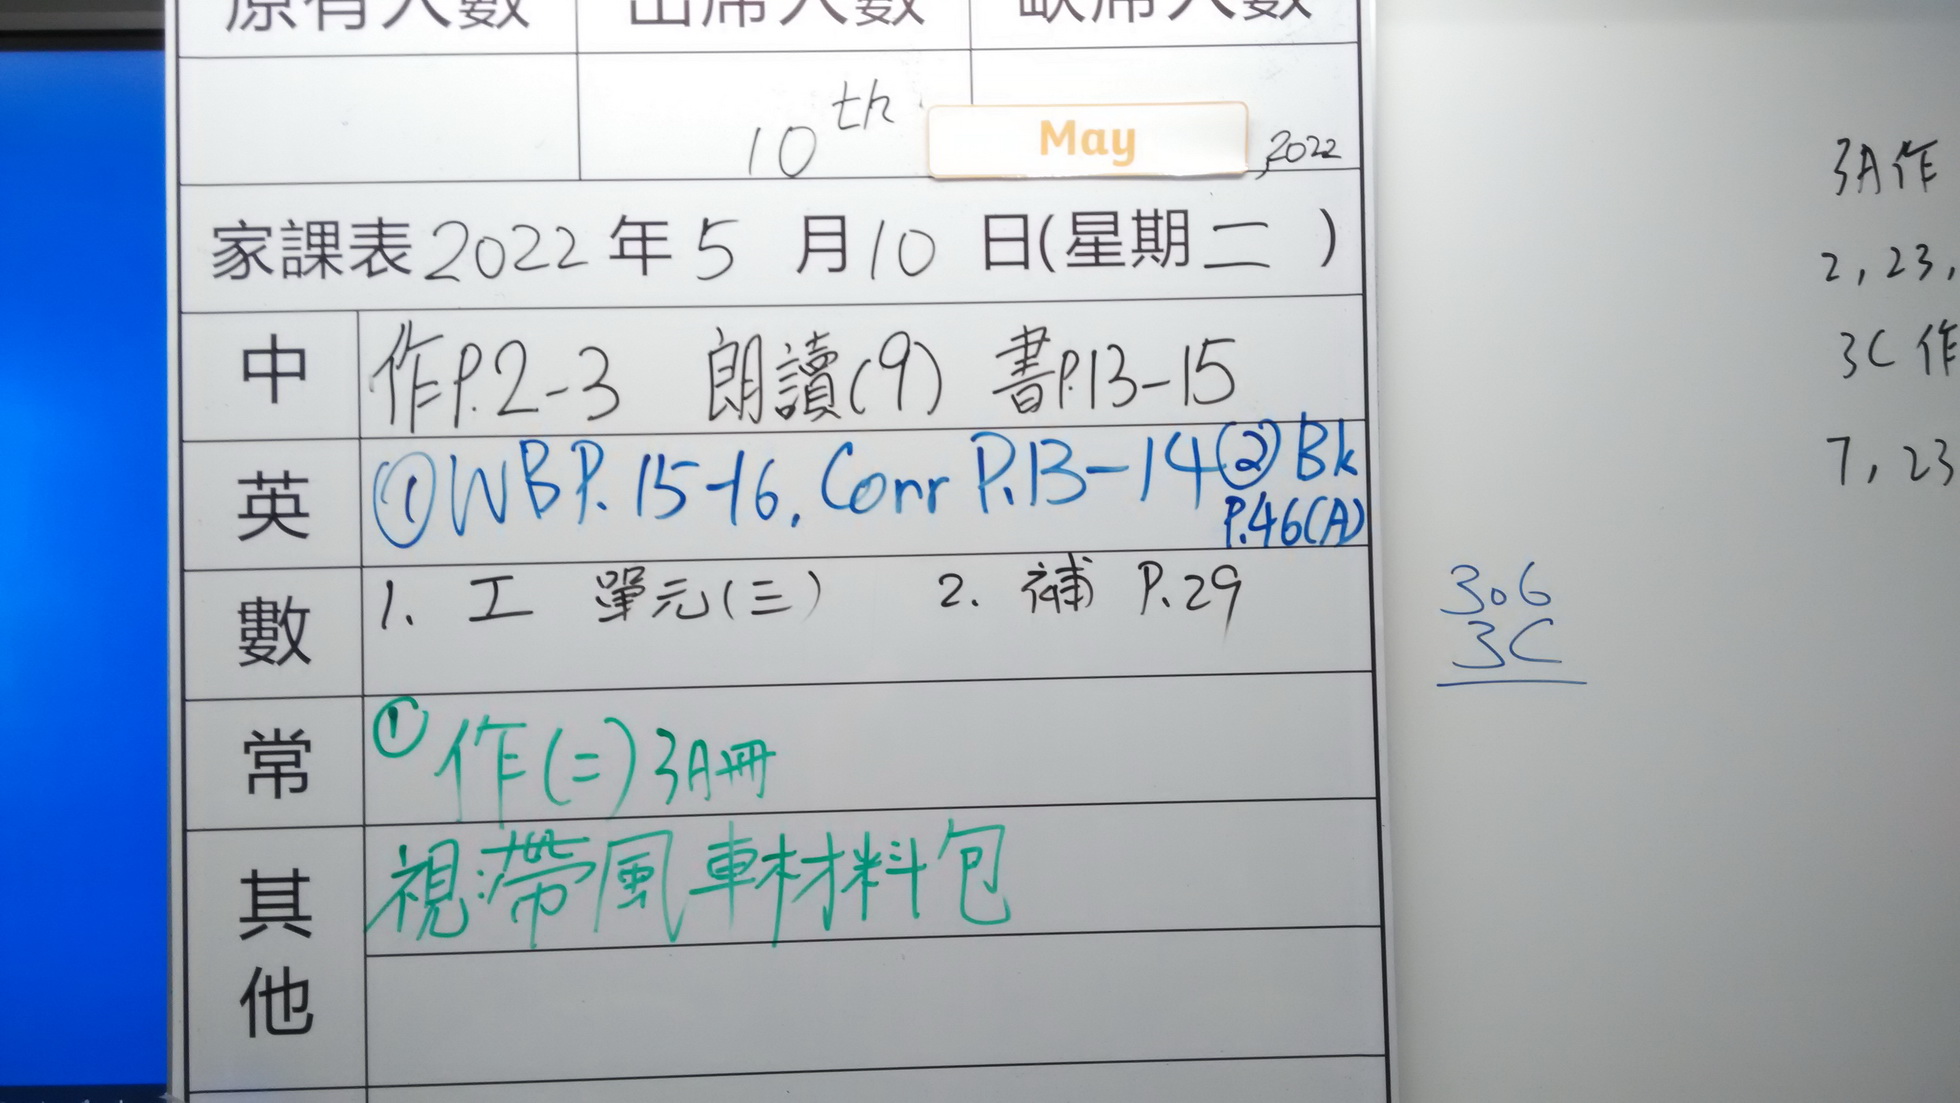 原有人數 出席人數 缺席人數
10th May, 2022
家課表2022年5月10日(星期二)
中 作P.2-3 朗讀(9) 書P.13-15
英 ①WB P.15-16, Corr P.13-14 ②Bk
P.46(A)
數 1. 工 單元(三) 2. 補 P.29
常 ①作(二)3A冊
其他 視:帶風車材料包
3A作
2,23,
3C作
7,23
306
3C